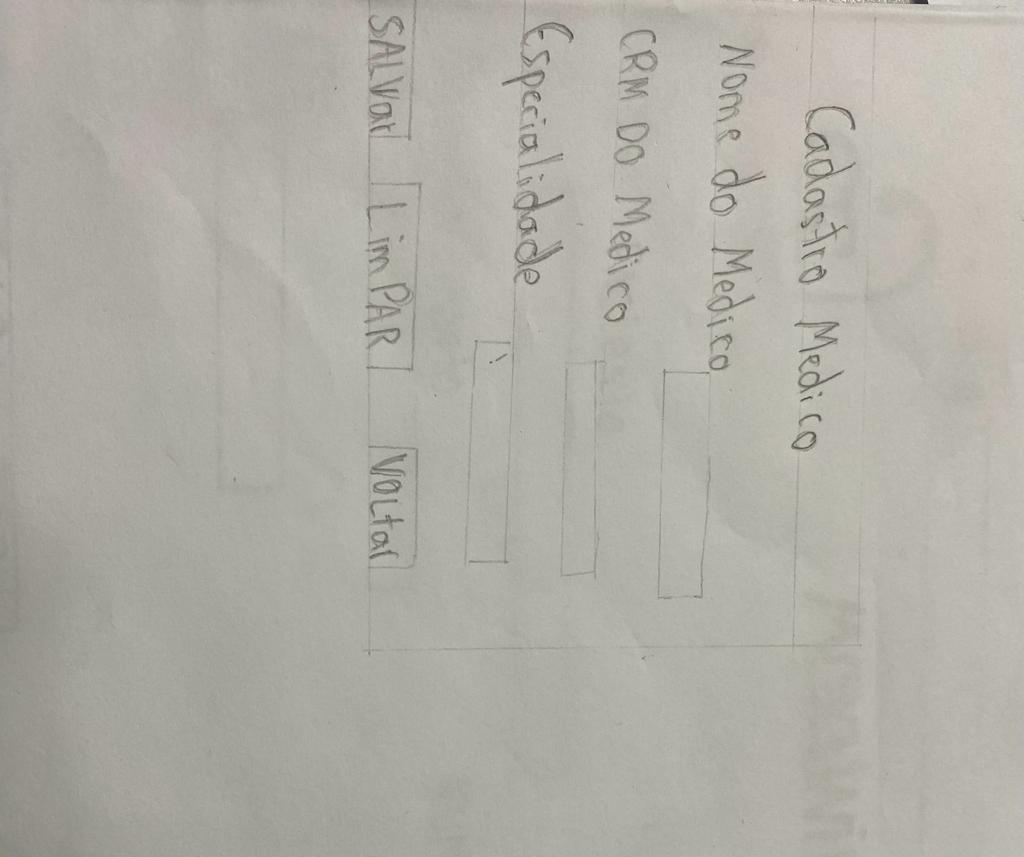 Cadastro Medico
Nome do Medico
CRM DO Medico
Especialidade
SALVar LimPAR VOLtar